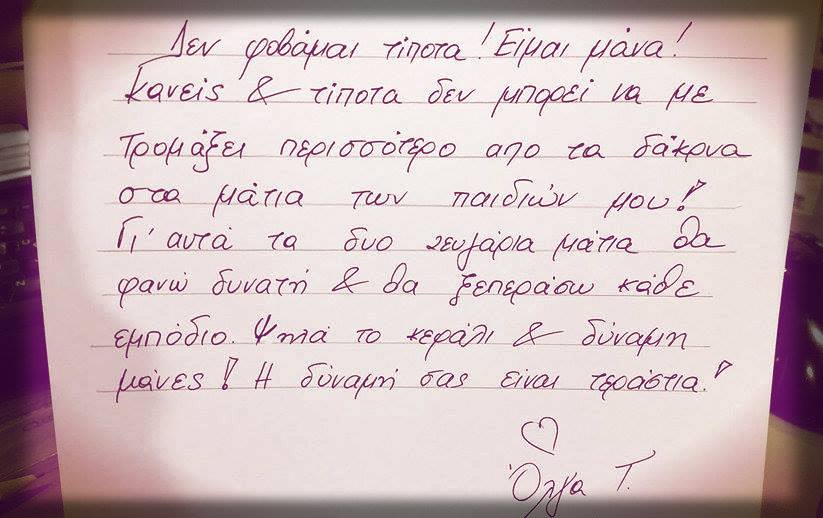 Δεν φοβάμαι τίποτα! Είμαι μάνα!
Κανείς & τίποτα δεν μπορεί να με
τρομάξει περισσότερο απο τα δάκρυα
στα μάτια των παιδιών μου!
Γι' αυτά τα δυο ζευγάρια μάτια θα
φανώ δυνατή & θα ξεπεράσω κάθε
εμπόδιο. Ψηλά το κεφάλι & δύναμη
μάνες! Η δύναμή σας είναι τεράστια!
♡
Όλγα Τ.